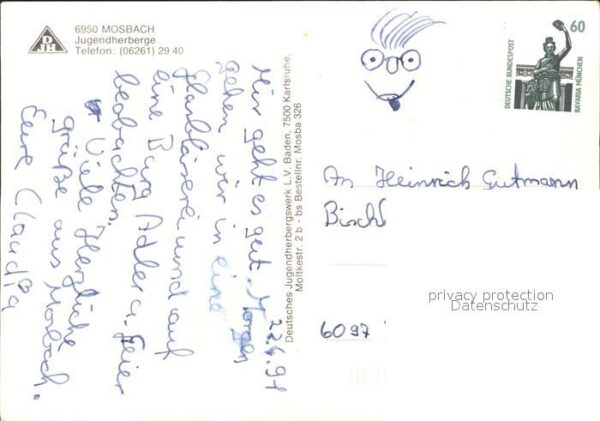 6950 MOSBACH
Jugendherberge
Telefon: (06261) 29 40
DJH
22.4.91
Mir geht es gut. Morgen
gehen wir in eine
Glasbläserei und auf
eine Burg Adler u. Geier
beobachten.
Viele Herzliche
grüße aus Mosbach.
Eure Claudia
Deutsches Jugendherbergswerk L.V. Baden, 7500 Karlsruhe,
Moltkestr. 2 b - bs Bestellnr. Mosba 326
60
DEUTSCHE BUNDESPOST
BAVARIA MÜNCHEN
An Heinrich Gutmann
6097
privacy protection
Datenschutz